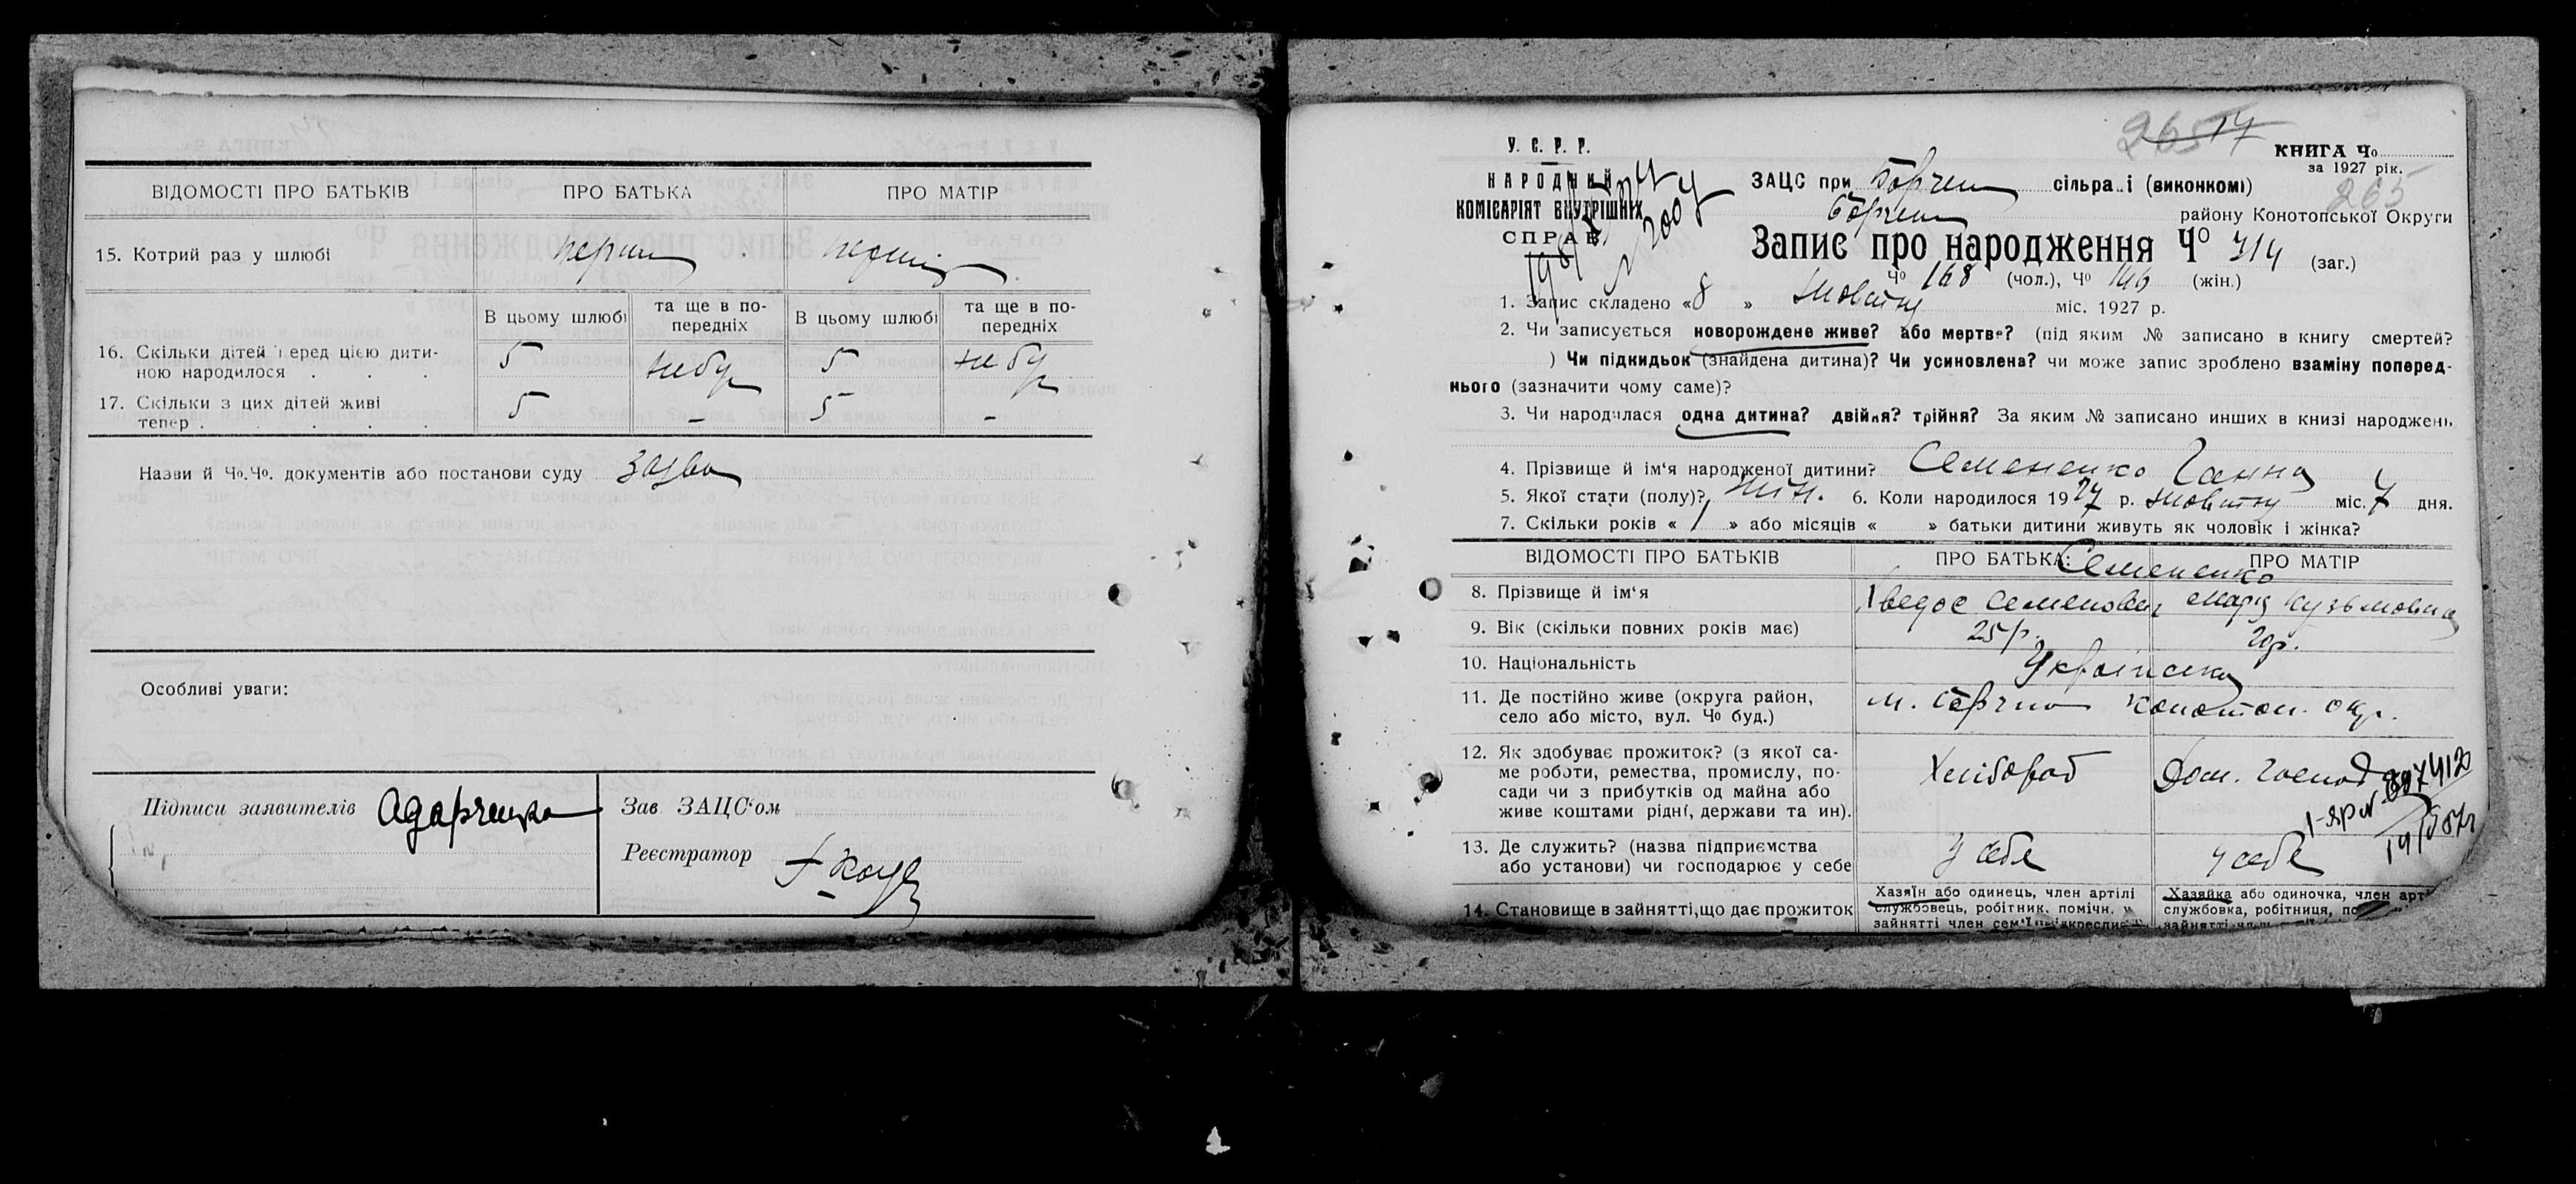 ВІДОМОСТІ ПРО БАТЬКІВ ПРО БАТЬКА ПРО МАТІР
15. Котрий раз у шлюбі перши
В цьому шлюбі та ще в по-передніх В цьому шлюбі та ще в по-передніх
16. Скільки дітей перед цією дити-
ною народилося . . . 5 небу 5 небу
17. Скільки з цих дітей живі
тепер . . . . . 5 – 5 –
Назви й Чо.Чо. документів або постанови суду заява
Особливі уваги:
Підписи заявителів Зав ЗАЦС'ом
Реєстратор
2657 14
У. С. Р. Р. КНИГА Чо
за 1927 рік.
265
НАРОДНИЙ ЗАЦС при Борзен сільраді (виконкомі)
КОМІСАРІЯТ ВНУТРІШНІХ Борзен району Конотопської Округи
СПРАВ Запис про народження Чо 314 (заг.)
Чо 168 (чол.), Чо 146 (жін.)
1. Запис складено «8» Жовтня міс. 1927 р.
2. Чи записується новорождене живе? або мертве? (під яким № записано в книгу смертей?
) Чи підкидьок (знайдена дитина)? Чи усиновлена? чи може запис зроблено взаміну поперед-
нього (зазначити чому саме)?
3. Чи народилася одна дитина? двійня? трійня? За яким № записано инших в книзі народжень
4. Прізвище й ім'я народженої дитини? Семененко Ганна
5. Якої стати (полу)? жін. 6. Коли народилося 1927 р. жовтня міс. 7 дня.
7. Скільки років «1» або місяців « » батьки дитини живуть як чоловік і жінка?
ВІДОМОСТІ ПРО БАТЬКІВ ПРО БАТЬКА: ПРО МАТІР
Семененко
8. Прізвище й ім'я Хведос Семенович Марія Кузьмовна
9. Вік (скільки повних років має) 25 р. 20р.
10. Національність Українська
11. Де постійно живе (округа район,
село або місто, вул. Чо буд.) м. Борзна Конотоп. окр.
12. Як здобуває прожиток? (з якої са-
ме роботи, ремества, промислу, по-
сади чи з прибутків од майна або
живе коштами рідні, держави та ин). Хлібороб Дом. господ
13. Де служить? (назва підприємства
або установи) чи господарює у себе у себе у себе
14. Становище в зайнятті, що дає прожиток
Хазяїн або одинець, член артілі
службовець, робітник, помічн. у
зайнятті член сем'ї
Хазяйка або одиночка, член арт
службовка, робітниця, по
зайнятті